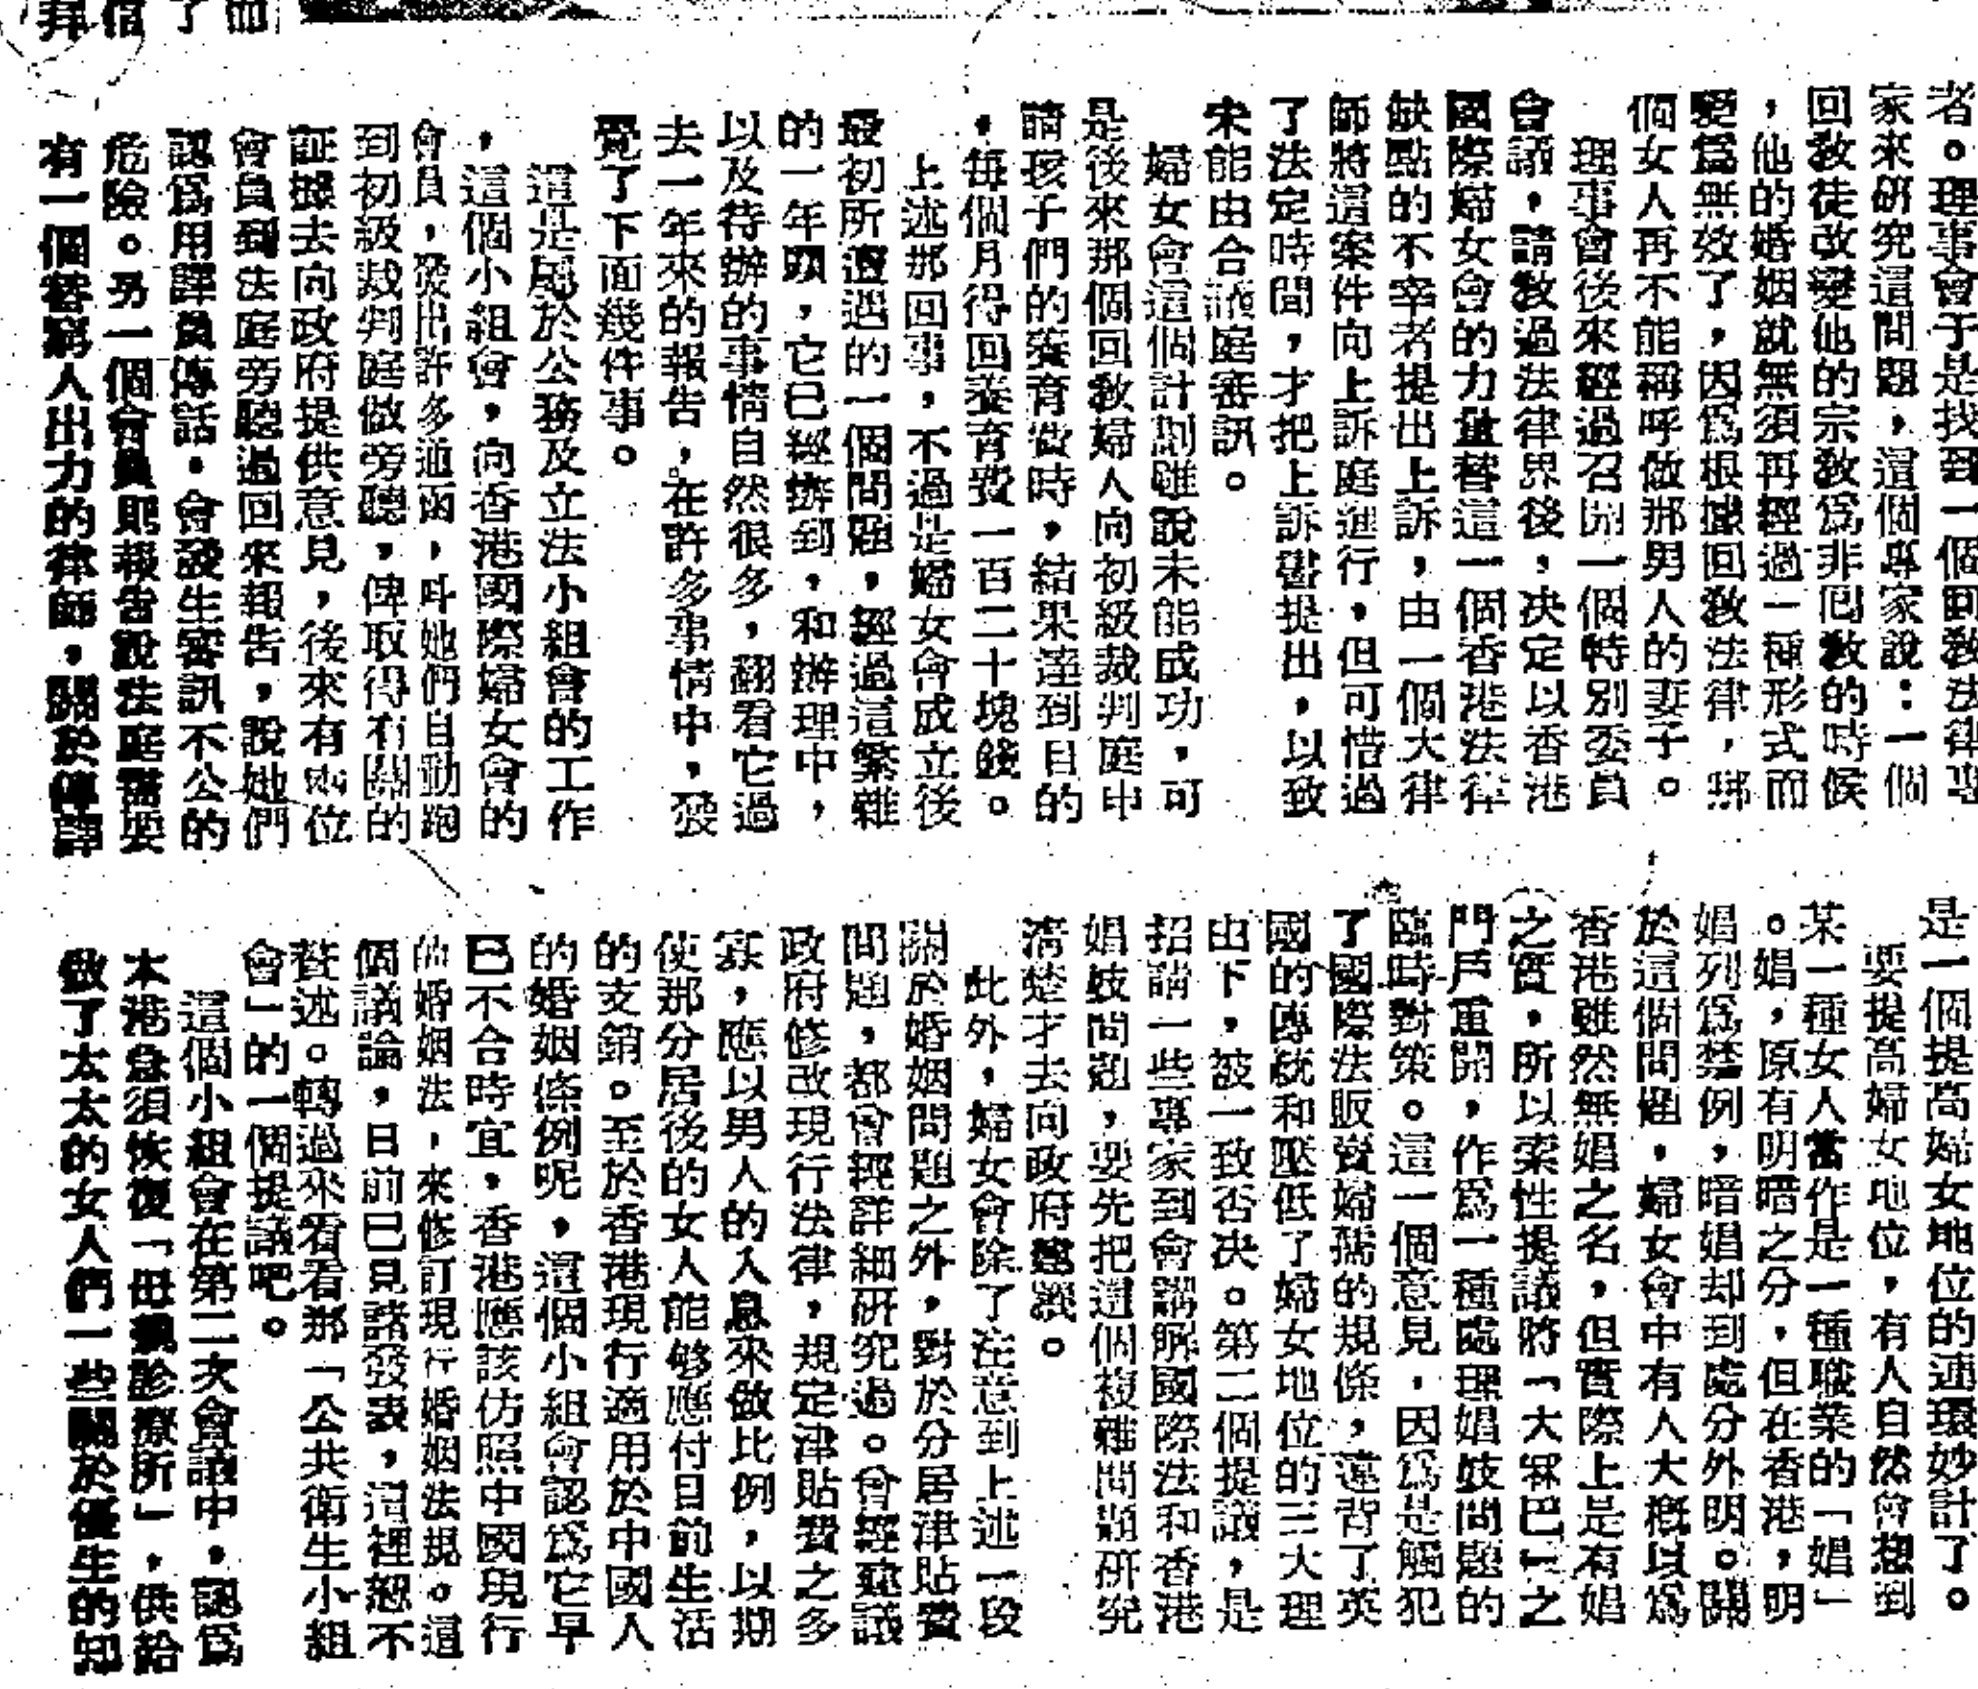 者。理事會于是找到一個回教法律專
家來研究這問題，這個專家說：一個
回教徒改變他的宗教爲非回教的時候
，他的婚姻就無須再經過一種形式而
變爲無效了，因爲根據回教法律，那
個女人再不能稱呼做那男人的妻子。
理事會後來經過召開一個特別委員
會議，請教過法律界後，决定以香港
國際婦女會的力量替這一個香港法律
缺點的不幸者提出上訴，由一個大律
師將這案件向上訴庭進行，但可惜過
了法定時間，才把上訴書提出，以致
未能由合議庭審訊。
婦女會這個計劃雖說未能成功，可
是後來那個回教婦人向初級裁判庭申
請孩子們的養育費時，結果達到目的
，每個月得回養育費一百二十塊錢。
上述那回事，不過是婦女會成立後
最初所遭遇的一個問題，經過這繁雜
的一年頭，它已經辦到，和辦理中，
以及待辦的事情自然很多，翻看它過
去一年來的報告，在許多事情中，發
覺了下面幾件事。
這是屬於公務及立法小組會的工作
，這個小組會，向香港國際婦女會的
會員，發出許多通函，叫她們自動跑
到初級裁判庭做旁聽，俾取得有關的
証據去向政府提供意見，後來有兩位
會員到法庭旁聽過回來報告，說她們
認爲用譯員傳話，會發生審訊不公的
危險。另一個會員則報告說法庭需要
有一個替窮人出力的律師，關於傳譯
是一個提高婦女地位的連環妙計了。
要提高婦女地位，有人自然會想到
某一種女人當作是一種職業的「娼」
。娼，原有明暗之分，但在香港，明
娼列爲禁例，暗娼却到處分外明。關
於這個問題，婦女會中有人大槪以爲
香港雖然無娼之名，但實際上是有娼
之實，所以索性提議將「大冧巴」之
門戶重開，作爲一種處理娼妓問題的
臨時對策。這一個意見，因爲是觸犯
了國際法販賣婦孺的規條，違背了英
國的傳統和壓低了婦女地位的三大理
由下，被一致否决。第二個提議，是
招請一些專家到會講解國際法和香港
娼妓問題，要先把這個複雜問題研究
清楚才去向政府建議。
此外，婦女會除了注意到上述一段
關於婚姻問題之外，對於分居津貼費
問題，都會經詳細研究過。會經建議
政府修改現行法律，規定津貼費之多
寡，應以男人的入息來做比例，以期
使那分居後的女人能够應付目前生活
的支銷。至於香港現行適用於中國人
的婚姻條例呢，這個小組會認爲它早
已不合時宜，香港應該仿照中國現行
的婚姻法，來修訂現行婚姻法規。這
個議論，日前已見諸發表，這裡恕不
贅述。轉過來看看那「公共衛生小組
會」的一個提議吧。
這個小組會在第二次會議中，認爲
本港急須恢復「母親診療所」，供給
做了太太的女人們一些關於優生的知